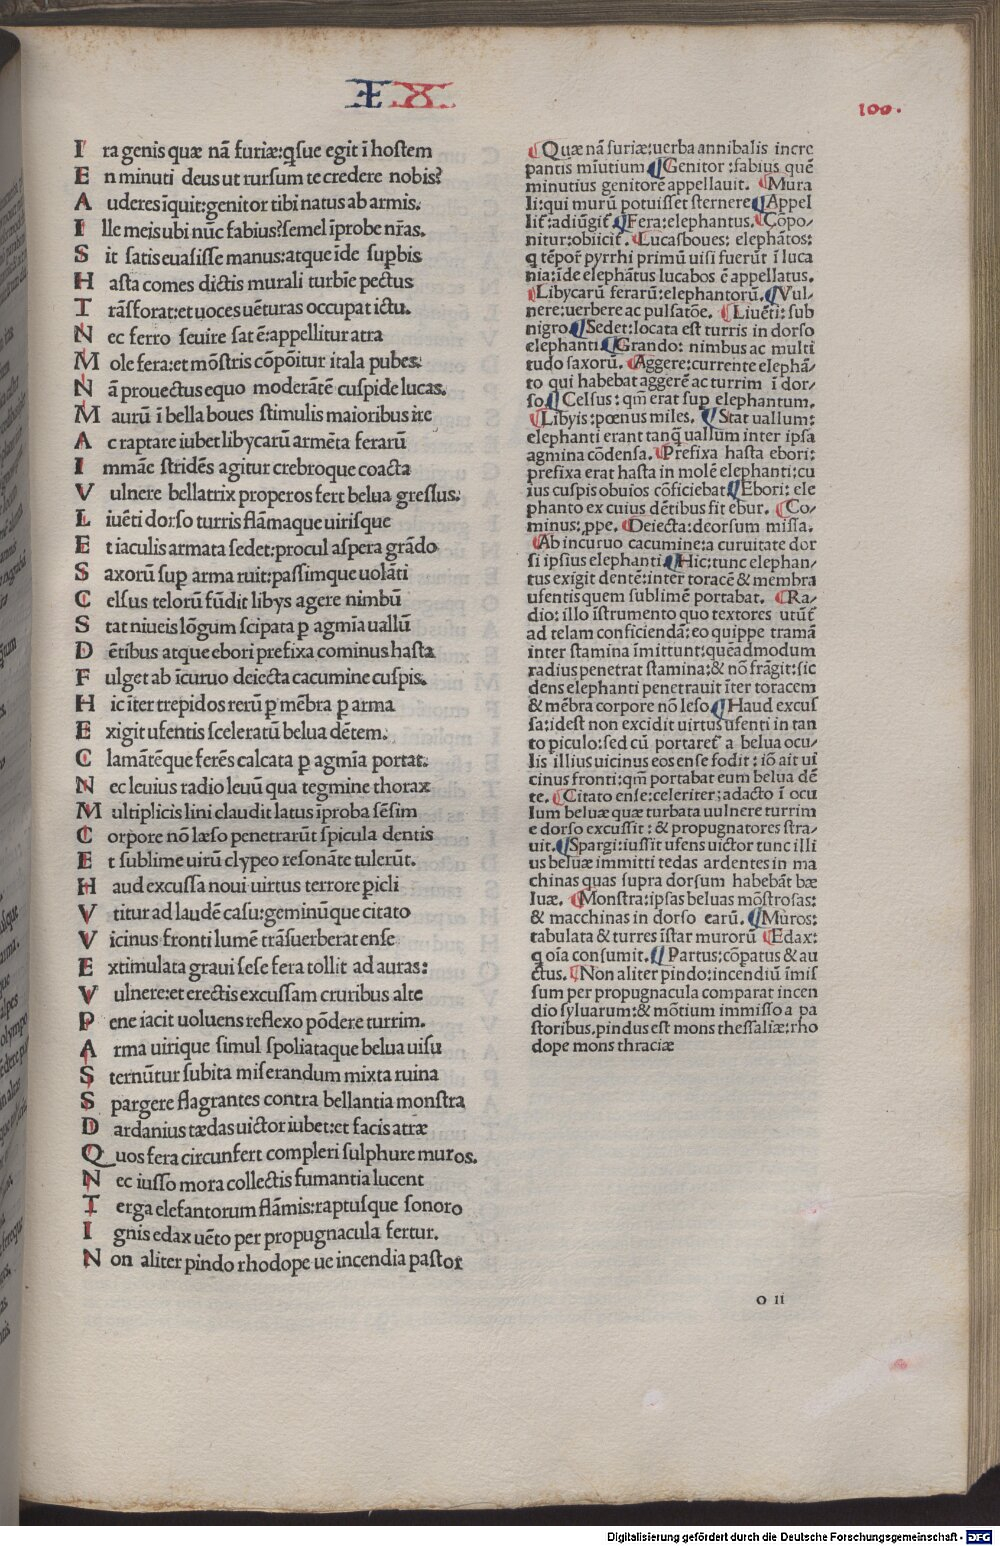 IX
100.
I ra genis quæ nã furiæ:qꝫue egit ĩ hostem
E n minuti deus ut rursum te credere nobis?
A uderes ĩquit:genitor tibi natus ab armis.
I lle meis ubi nũc fabius?semel ĩprobe nr̃as.
S it satis euasisse manus:atque ĩde sup̱bis
H asta comes dictis murali turbĩe pectus
T rãsforat:et uoces uẽturas occupat ictu.
N ec ferro seuire sat ẽ:appellitur atra
M ole fera:et mõstris cõpõitur itala pubes.
N ã prouectus equo moderãtẽ cuspide lucas.
M aurũ ĩ bella boues stimulis maioribus ire
A c raptare iubet libycarũ armẽta ferarũ
I mmãe stridẽs agitur crebroque coacta
V ulnere bellatrix properos fert belua gressus.
L iuẽti dorso turris flãmaque uirisque
E t iaculis armata sedet:procul aspera grãdo
S axorũ sup̱ arma ruit:passimque uolãti
C elsus telorũ fũdit libys agere nimbũ
S tat niueis lõgum scipata p̱ agmĩa uallũ
D ẽtibus atque ebori prefixa cominus hasta
F ulget ab ĩcuruo deiecta cacumine cuspis.
H ic ĩter trepidos rerũ p̱ mẽbra p̱ arma
E xigit ufentis sceleratũ belua dẽtem.
C lamãtẽque ferẽs calcata p̱ agmĩa portat.
N ec leuius radio leuũ qua tegmine thorax
M ultiplicis lini claudit latus ĩproba sẽsim
C orpore nõ læso penetrarũt spicula dentis
E t sublime uirũ clypeo resonãte tulerũt.
H aud excussa noui uirtus terrore p̱icli
V titur ad laudẽ casu:geminũque citato
V icinus fronti lumẽ trãsuerberat ense
E xtimulata graui sese fera tollit ad auras:
V ulnere:et erectis excussam cruribus alte
P ene iacit uoluens reflexo põdere turrim.
A rma uirique simul spoliataque belua uisu
S ternũtur subita miserandum mixta ruina
S pargere flagrantes contra bellantia monstra
D ardanius tædas uictor iubet:et facis atræ
Q uos fera circunfert compleri sulphure muros.
N ec iusso mora collectis fumantia lucent
T erga elefantorum flãmis:raptusque sonoro
I gnis edax uẽto per propugnacula fertur.
N on aliter pindo rhodope ue incendia pastor
¶Quæ nã furiæ:uerba annibalis incre
pantis mĩutium ¶Genitor :fabius quẽ
minutius genitorẽ appellauit. ¶Mura
li:qui murũ potuisset sternere ¶Appel
lit̃:adiũgit̃ ¶Fera:elephantus.¶Cõpo⸗
nitur:obiicit̃. ¶Lucasboues: elephãtos:
q tẽpor̃ pyrrhi primũ uisi fuerũt ĩ luca
nia:ĩde elephãtus lucabos ẽ appellatus.
¶Libycarũ ferarũ:elephantorũ.¶Vul⸗
nere:uerbere ac pulsatõe. ¶Liuẽti: sub
nigro ¶Sedet:locata est turris in dorso
elephanti ¶Grando: nimbus ac multi
tudo saxorũ. ¶Aggere:currente elephã⸗
to qui habebat aggerẽ ac turrim ĩ dor⸗
so.¶Celsus: qm̃ erat sup elephantum.
¶Libyis:pœnus miles. ¶Stat uallum:
elephanti erant tanq̃ uallum inter ipsa
agmina cõdensa.¶Prefixa hasta ebori:
prefixa erat hasta in molẽ elephanti:cu
ius cuspis obuios cõficiebat ¶Ebori: ele
phanto ex cuius dẽtibus fit ebur. ¶Co⸗
minus:ꝓpe. ¶Deiecta:deorsum missa.
¶Ab incuruo cacumine:a curuitate dor
si ipsius elephanti ¶Hic:tunc elephan⸗
tus exigit dentẽ:inter toracẽ & membra
ufentis quem sublimẽ portabat. ¶Ra⸗
dio:illo ĩstrumento quo textores utũt̃
ad telam conficiendã:eo quippe tramã
inter stamina ĩmittunt:quẽadmodum
radius penetrat stamina:& nõ frãgit:sic
dens elephanti penetrauit ĩter toracem
& mẽbra corpore nõ leso ¶Haud excus
sa:idest non excidit uirtus ufenti in tan
to piculo:sed cũ portaret̃ a belua ocu⸗
lis illius uicinus eos ense fodit : iõ ait ui
cinus fronti:qm̃ portabat eum belua dẽ
te. ¶Citato ense:celeriter:adacto ĩ ocu
lum beluæ quæ turbata uulnere turrim
e dorso excussit : & propugnatores stra⸗
uit.¶Spargi:iussit ufens uictor tunc illi
us beluæ immitti tedas ardentes in ma
chinas quas supra dorsum habebãt bæ
luæ. ¶Monstra:ipsas beluas mõstrosas:
& macchinas in dorso earũ. ¶Muros:
tabulata & turres ĩstar murorũ ¶Edax:
q oĩa consumit.¶Partus:cõpatus & au
ctus. ¶Non aliter pindo:incendiũ ĩmis
sum per propugnacula comparat incen
dio syluarum:& mõtium immisso a pa
storibus.pindus est mons thessaliæ:rho
dope mons thraciæ
o ii
Digitalisierung gefördert durch die Deutsche Forschungsgemeinschaft - DFG